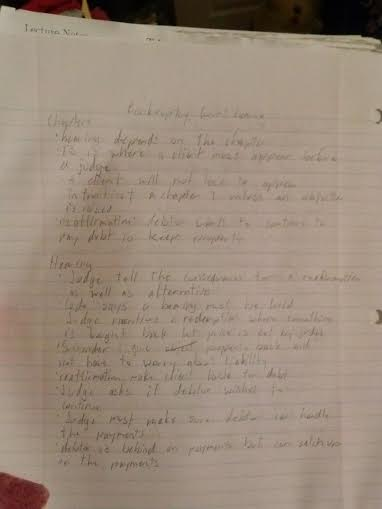 Lecture Notes
Bankruptcy Court hearing
Chapters
hearing depends on the chapter
is where a client must appear before
a judge
a client will not have to appear
in a chapter 7 unless an
is raised
reaffirmation: debtor wants to continue to
pay debt to keep property
Hearing
Judge tell the consequences to a reaffirmation
as well as alternative
Code says a hearing must be held
Judge mentions a redemption where something
is bought back but price is set by
Surrender: give property back and
not have to worry about liability
reaffirmation make client liable to debt
Judge asks if debtor wishes to
continue
Judge must make sure debtor can handle
the payments
debtor is behind on payments but can catch up
on the payments